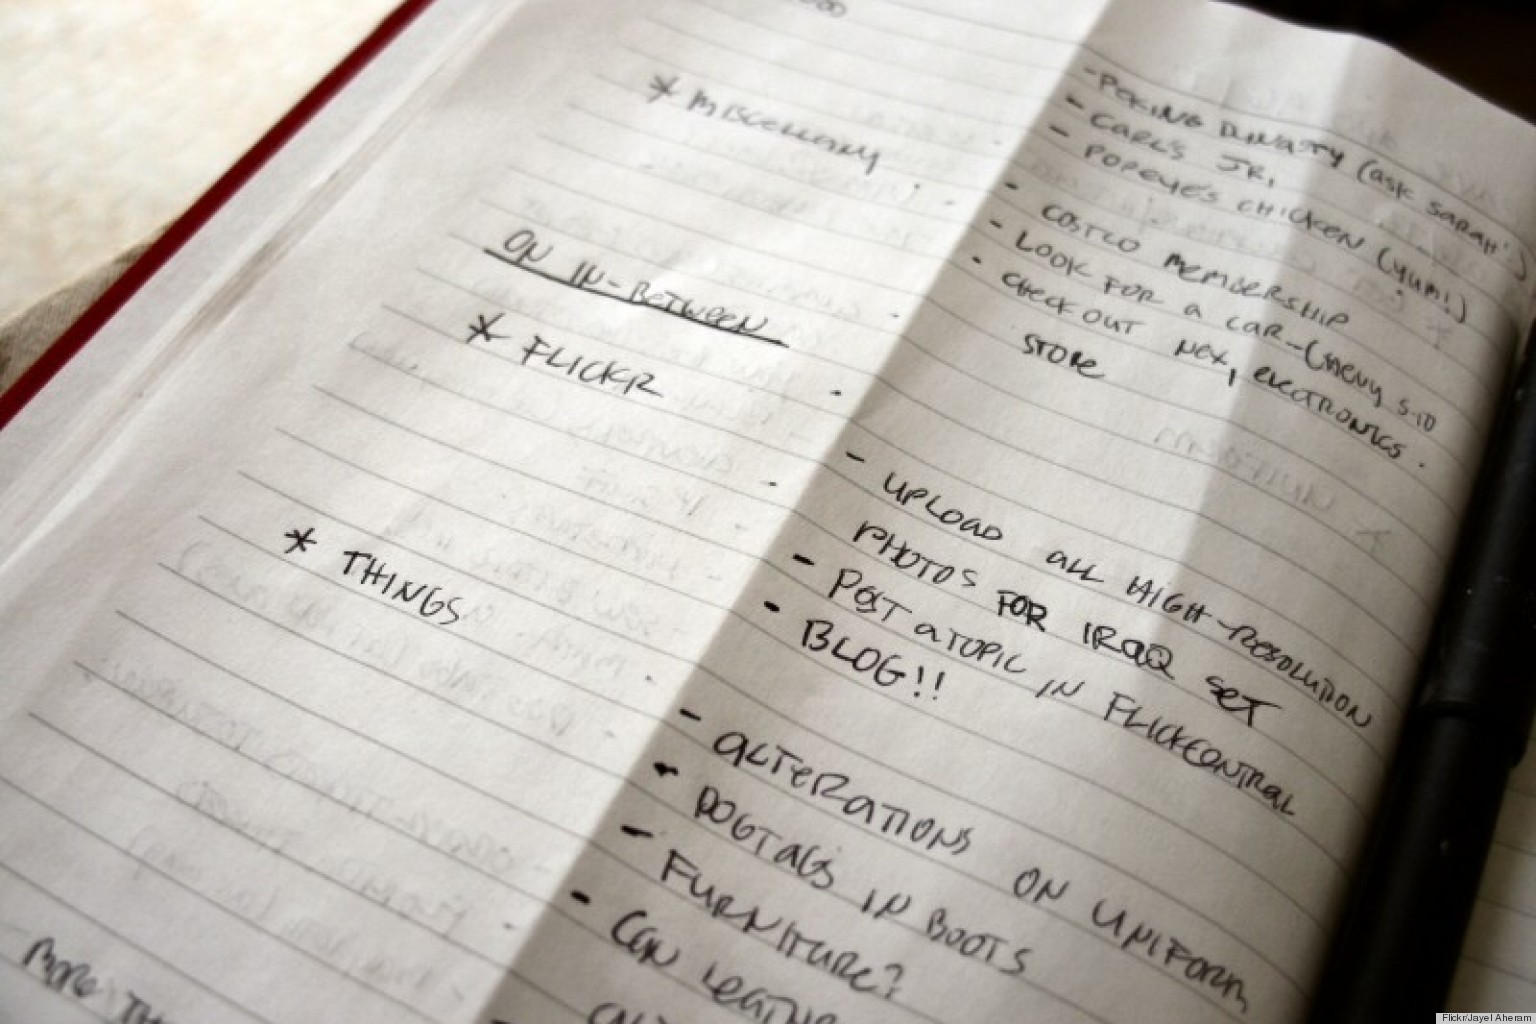 * MISCELLANY
- PEKING DYNASTY (ask SARAH!)
- CARL'S JR.
- POPEYE'S CHICKEN (YUM!)
- COSTCO MEMBERSHIP
- LOOK FOR A CAR - CHEVY S-10
- CHECK OUT NEX, ELECTRONICS
STORE
ON IN-BETWEEN
* FLICKR
- UPLOAD ALL HIGH-RESOLUTION
PHOTOS FOR IRAQ SET
- POST A TOPIC IN FLICKRCENTRAL
- BLOG!!
* THINGS
- ALTERATIONS ON UNIFORM
- DOGTAGS IN BOOTS
- FURNITURE?
- CAN
MORE
Flickr/Jayel Aheram